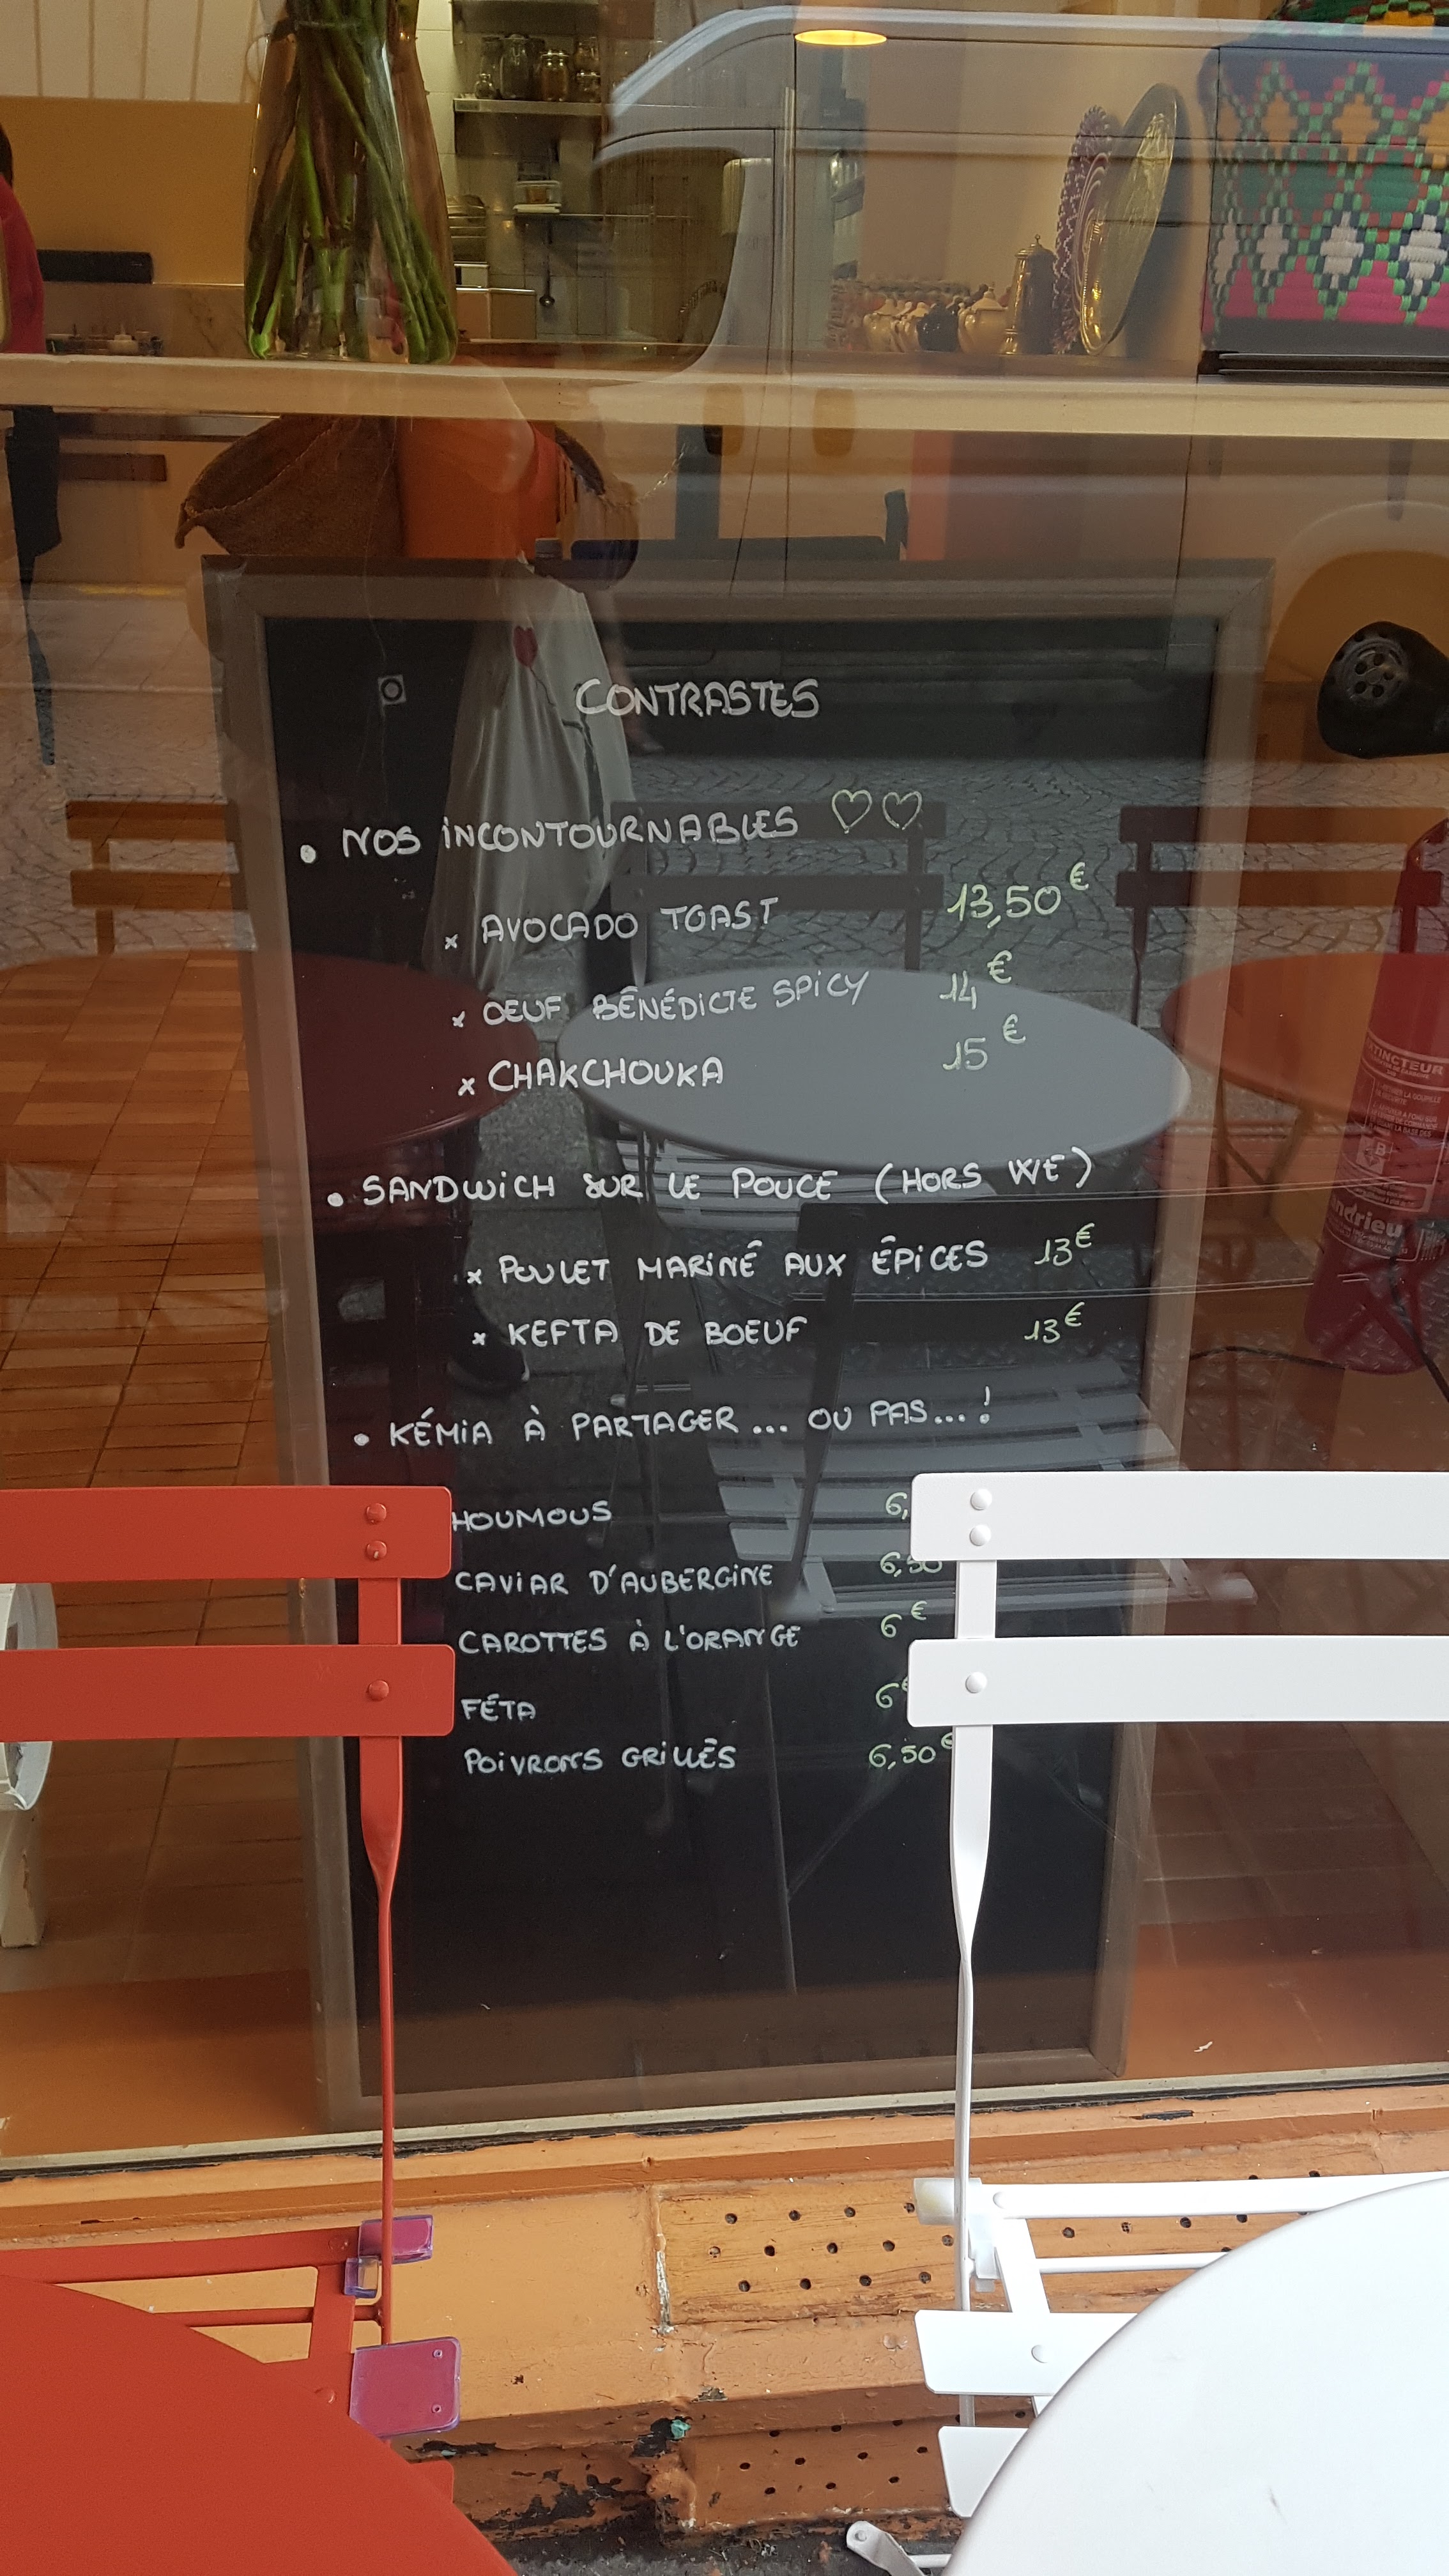 CONTRASTES
• NOS INCONTOURNABLES ♡♡
x AVOCADO TOAST 13,50€
x OEUF BÉNÉDICTE SPICY 14€
x CHAKCHOUKA 15€
• SANDWICH SUR LE POUCE (HORS WE)
x POULET MARINÉ AUX ÉPICES 13€
x KEFTA DE BOEUF 13€
• KÉMIA À PARTAGER... OU PAS...!
HOUMOUS 6,
CAVIAR D'AUBERGINE 6,50
CAROTTES À L'ORANGE 6€
FÉTA 6€
POIVRONS GRILLÉS 6,50€
TINCTEUR
B
ndrieu